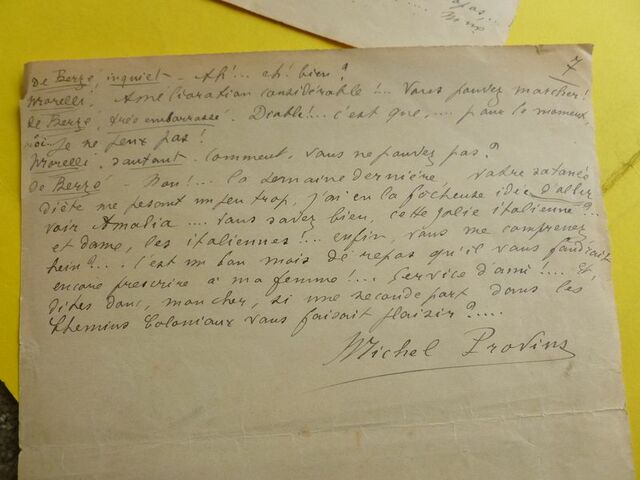 7
de Berzé, inquiet - Ah!... eh! bien?
Morelli, Amélioration considérable!... Vous pouvez marcher!
de Berzé, très embarrassé. Diable!... c'est que,.... pour le moment,
moi, je ne peux pas!
Morelli, sautant - Comment, vous ne pouvez pas?
de Berzé - Non!... la semaine dernière, votre satanée
diète me pesant un peu trop, j'ai eu la fâcheuse idée d'aller
voir Amalia.... vous savez bien, cette jolie italienne?...
et dame, les italiennes!... enfin, vous me comprenez
hein?... C'est un bon mois de repos qu'il vous faudrait
encore prescrire à ma femme!... Service d'ami!... Et,
dites donc, mon cher, si une seconde part dans les
Chemins Coloniaux vous faisait plaisir?.....
Michel Provins